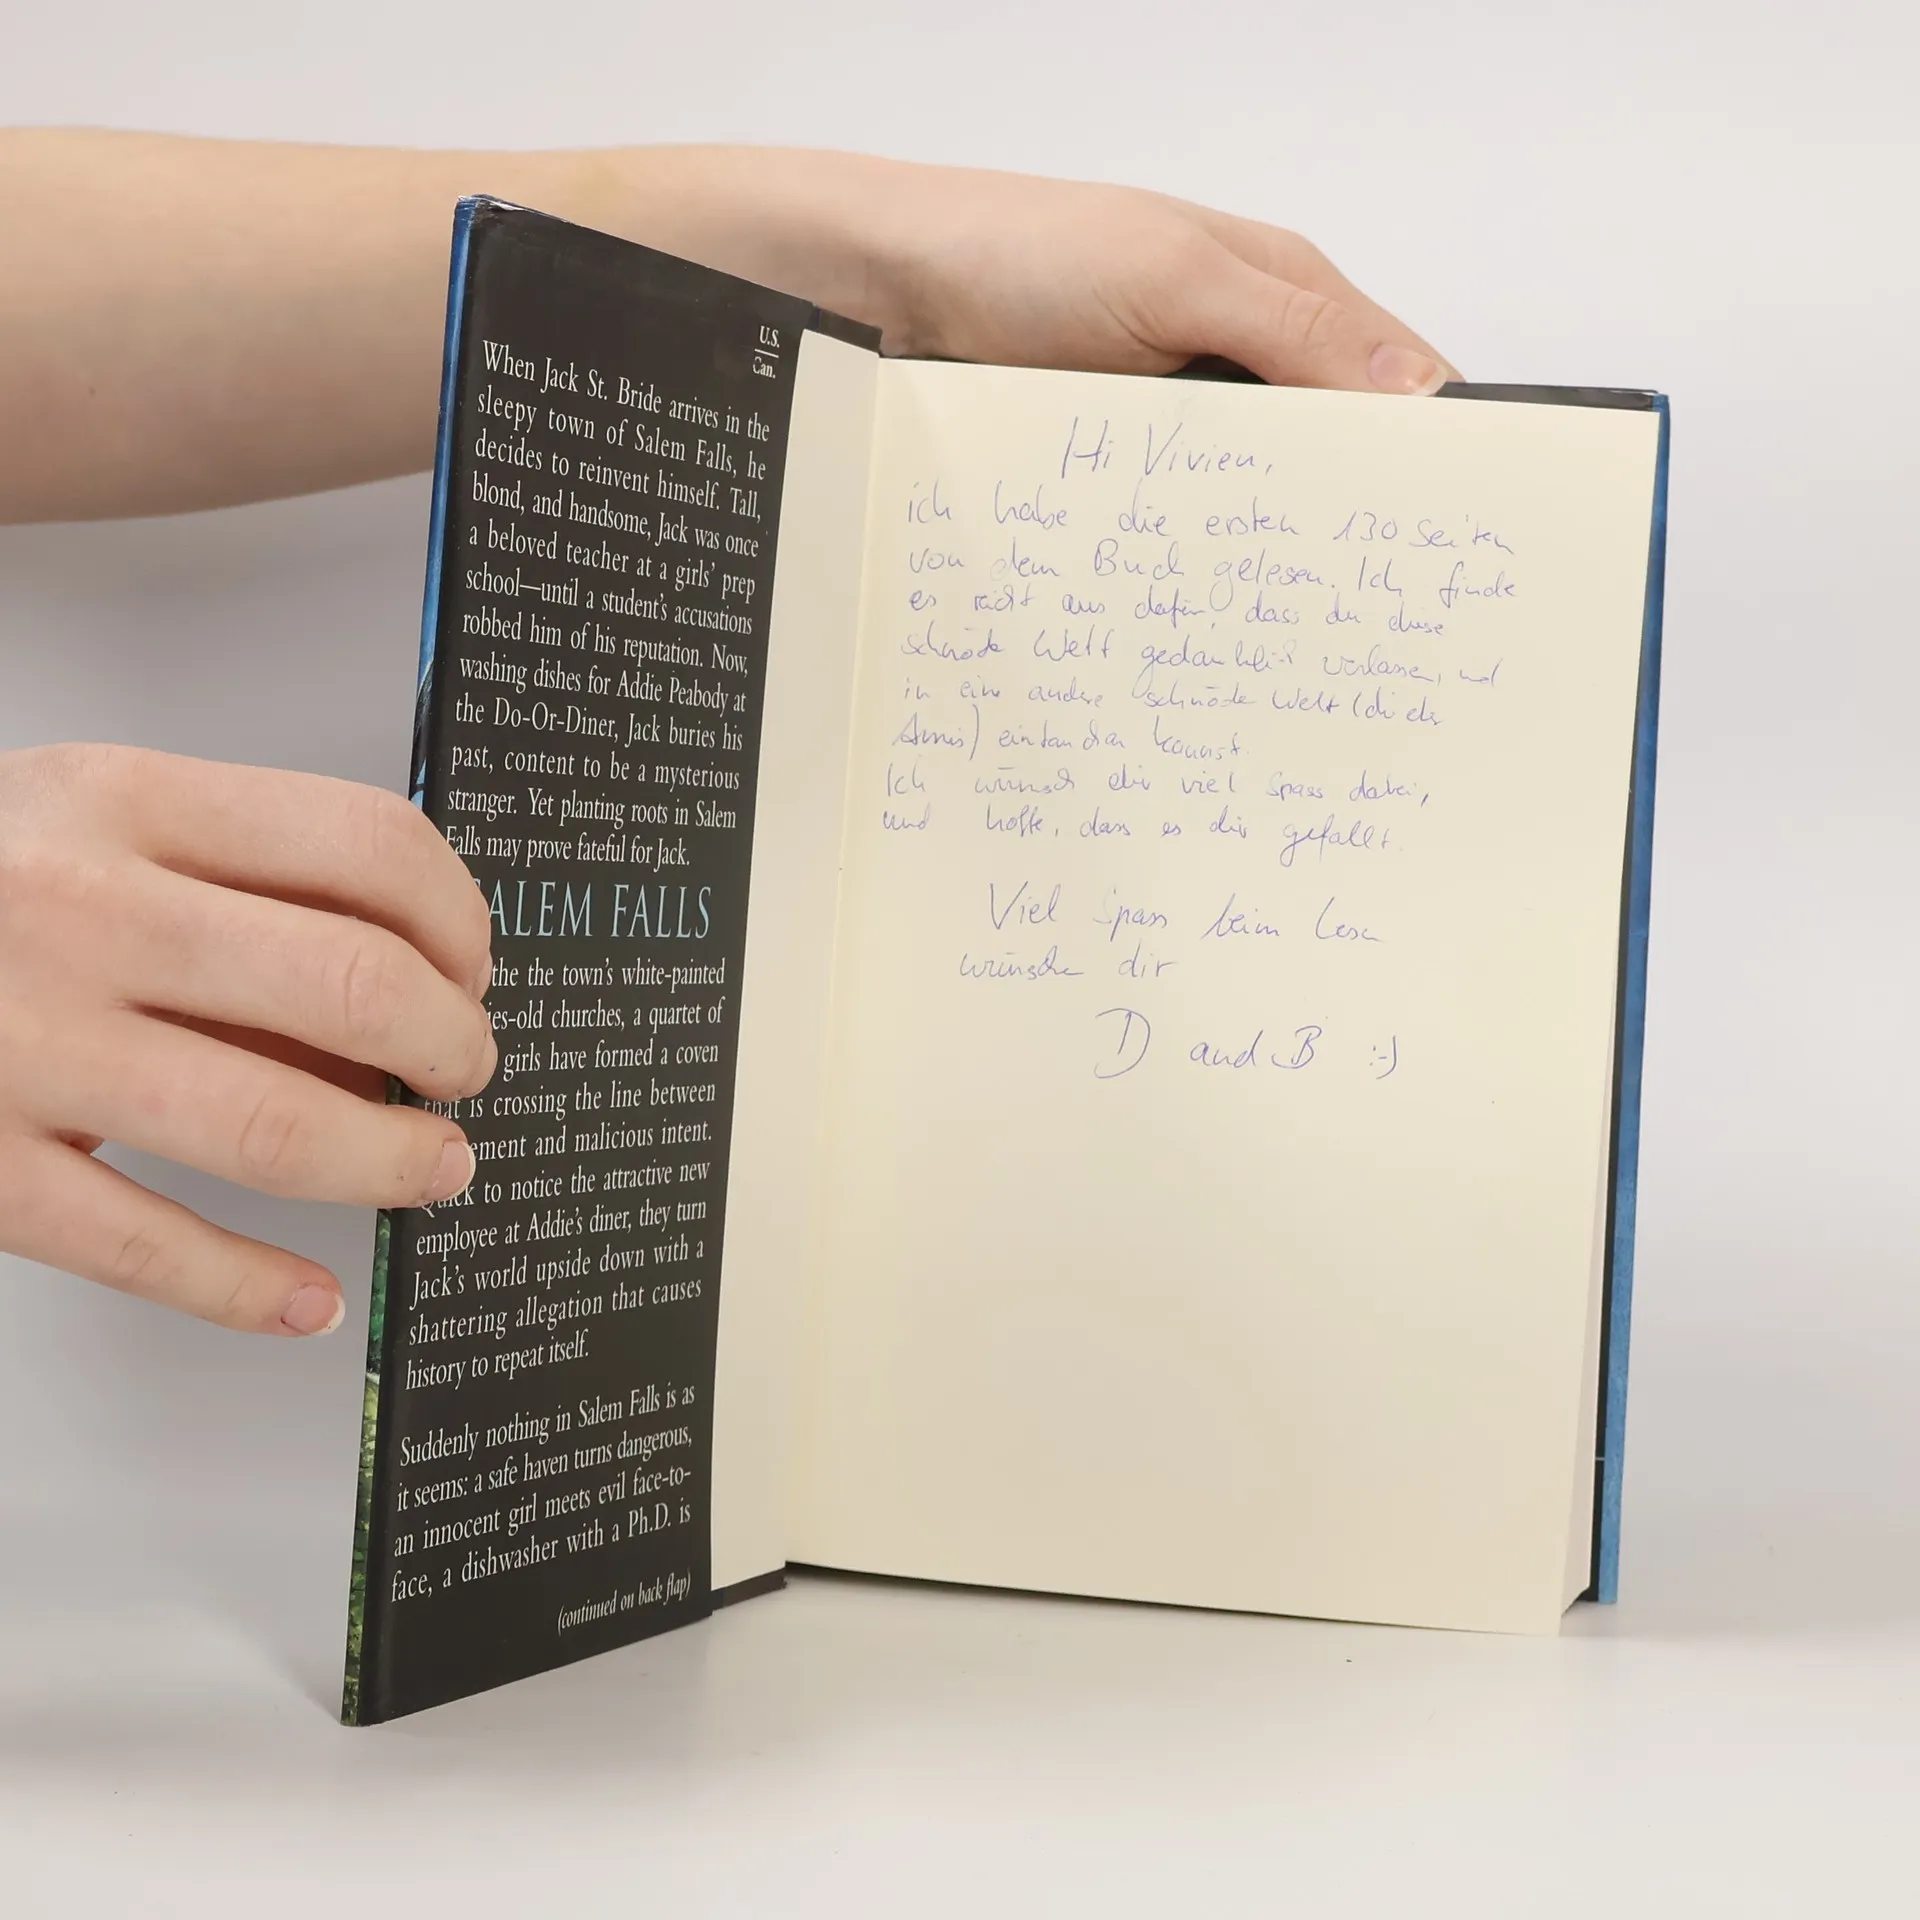 U.S.
Can.
When Jack St. Bride arrives in the
sleepy town of Salem Falls, he
decides to reinvent himself. Tall,
blond, and handsome, Jack was once
a beloved teacher at a girls' prep
school—until a student's accusations
robbed him of his reputation. Now,
washing dishes for Addie Peabody at
the Do-Or-Diner, Jack buries his
past, content to be a mysterious
stranger. Yet planting roots in Salem
Falls may prove fateful for Jack.
SALEM FALLS
the the town's white-painted
ies-old churches, a quartet of
girls have formed a coven
that is crossing the line between
ement and malicious intent.
Quick to notice the attractive new
employee at Addie's diner, they turn
Jack's world upside down with a
shattering allegation that causes
history to repeat itself.
Suddenly nothing in Salem Falls is as
it seems: a safe haven turns dangerous,
an innocent girl meets evil face-to-
face, a dishwasher with a Ph.D. is
(continued on back flap)
Hi Vivien,
ich habe die ersten 130 Seiten
von dem Buch gelesen. Ich finde
es reicht aus dafür, dass du diese
schnöde Welt gedanklich verlassen, und
in eine andere schnöde Welt (die der
Amis) eintauchen kannst.
Ich wünsch dir viel Spass dabei,
und hoffe, dass es dir gefällt.
Viel Spass beim Lesen
wünsche dir
D and B :-)